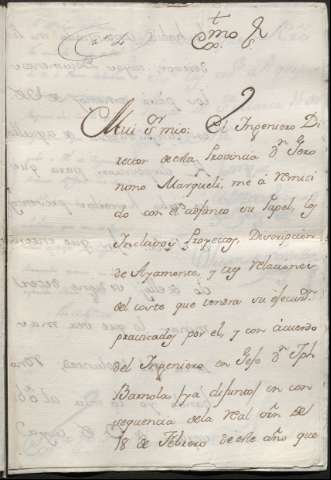 Exmo Sr
Mui Sr mio: El Ingeniero Di
rector de esta Provincia Dn Gero
nimo Marqueli, me á remiti
do con el adjunto su Papel, los
Incluidos Proyectos, Descripcion
de Ayamonte, y las relaciones
del costo que tendra su execucn.
practicados por el, y con acuerdo
del Ingeniero en Gefe Dn Jph
Barnola (ya difunto) en con
sequencia de la real orñ de
18 de Febrero de este año que